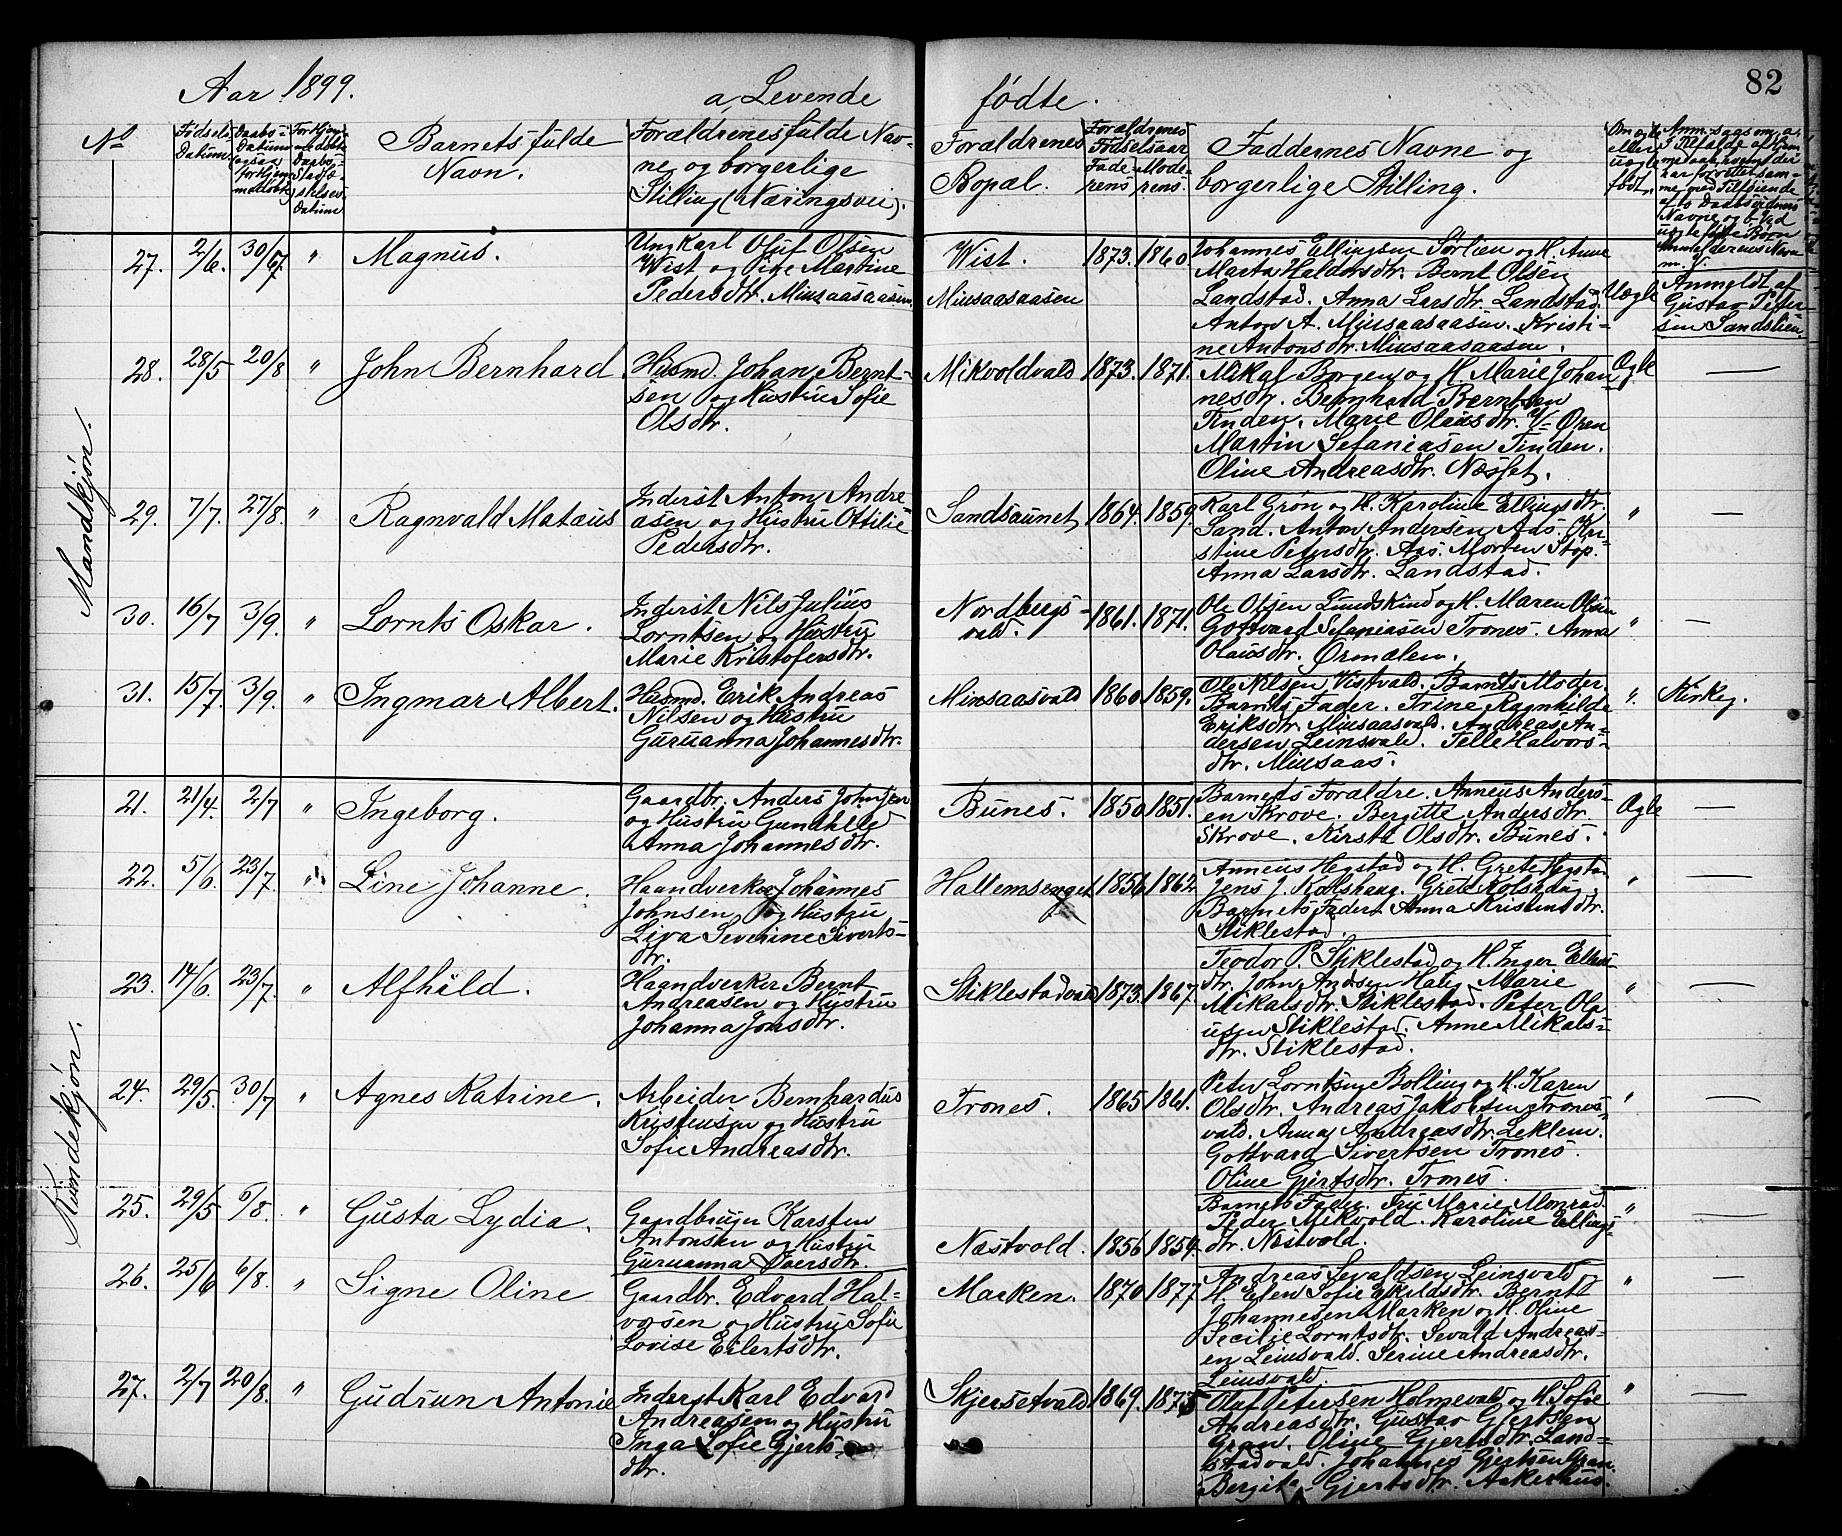 82
Aar 1899. a, Levende fødte.
No
Fødsels Datum.
Daabs- Datum
Barnets fulde Navn.
Forældrenes fulde Nav-
ne og borgerlige
Stilling (Næringsvei).
Forældrenes
Bopæl.
Forældrenes
Fødselsaar
Fade- rens
Mode- rens.
Faddernes Navne og
borgerlige Stilling.
Mandkjøn.
27. 2/6. 30/7. " Magnus.
Ungkarl Oluf Olsen
Wist og Pige Martine
Pedersdtr. Minsaasaasen.
Wist.
Minsaasaasen
1873. 1860
Johannes Ellingsen Sørlien og H. Anne
Marta Haldorsdtr. Bernt Olsen
Landstad. Anna Larsdtr. Landstad.
Anton A. Minsaasaasen. Kristi-
ne Antonsdtr. Minsaasaasen.
Uægte
Anmeldt af
Gustav Peder-
sen Sandslien.
28. 28/5 20/8 " John Bernhard.
Husmd. Johan Bernt-
sen og Hustru Sofie
Olsdtr.
Mikvoldvald 1873. 1871.
Mikal Borgen og H. Marie Johan
nesdtr. Bernhard Berntsen
Tinden. Marie Olausdtr. V- Øren
Martin Sefaniasen Tinden.
Oline Andreasdtr. Næsset.
Ægte —
29. 7/7. 27/8. " Ragnvald Mataus
Inderst Anton Andre-
asen og Hustru Ottilie
Pedersdtr.
Sandsaunet 1864. 1859.
Karl Grøn og H. Karoline Ellingsdtr.
Sand. Anton Andersen Aas. Kri-
stine Petersdtr. Aas. Morten Stop.
Anna Larsdtr. Landstad.
" —
30. 16/7 3/9. " Lornts Oskar.
Inderst Nils Julius
Lorntsen og Hustru
Marie Kristofersdtr.
Nordbergs-
vald.
1861. 1871.
Ole Olsen Lundskind og H. Maren Olsen
Gottvard Sefaniasen Trones. Anna
Olausdtr. Ørmælen.
" —
31. 15/7. 3/9. " Ingmar Albert.
Husmd. Erik Andreas
Nilsen og Hustru
Guruanna Johannesdtr.
Minsaasvald 1860 1859.
Ole Nilsen Vistvald. Barnets Moder.
Barnets Fader. Trine Ragnhilde
Eriksdtr. Minsaasvald. Andreas An-
dersen Leinsvald. Pelle Halvors-
dtr. Minsaas.
" Kirkeg.
Kvindekjøn.
21. 21/4. 2/7 " Ingeborg.
Gaardbr. Anders Johnsen
og Hustru Gunhild
Anna Johannesdtr.
Bunes. 1850 1851.
Barnets Forældre. Anneus Anders-
en Skrove. Bergitte Andersdtr.
Skrove. Kirsta Olsdtr. Bunes.
Ægte —
22. 5/6. 23/7. " Line Johanne.
Haandverker Johannes
Johnsen og Hustru
Liva Severine Siverts-
dtr.
Hallemsenget 1856 1862
Anneus Hegstad og H. Grete Hegsta
Jens J. Kolshaug. Gred Kolshaug.
Barnets Fader. Anna Kristensdtr.
Stiklestad.
" —
23. 14/6. 23/7. " Alfhild.
Haandverker Bernt
Andreasen og Hustru
Johanna Jonsdtr.
Stiklestadvald 1873. 1867.
Teodor P. Stiklestad og H. Inger Ellevs-
dtr. John Andsen Haug. Marie
Mikalsdtr. Stiklestad. Peter Ola-
usen Stiklestad. Anne Mikals-
dtr. Stiklestad.
" —
24. 29/5. 30/7 " Agnes Katrine.
Arbeider Bernhardus
Kristensen og Hustru
Sofie Andreasdtr.
Trones. 1865 1861.
Peter Lorntsen Bolling og H. Karen
Olsdtr. Andreas Jakobsen Trones-
vald. Anna Andreasdtr. Leklem.
Gottvard Sivertsen Trones.
Oline Gjertsdtr. Trones.
" —
25. 29/5 6/8. " Gusta Lydia.
Gaardbruger Karsten
Antonsen og Hustru
Guruanna Iversdtr.
Næstvold. 1856 1859.
Barnets Fader. Fru Marie Monrad.
Peder Mikvold. Karoline Ellings-
dtr. Næstvold.
" —
26. 25/6 6/8. " Signe Oline
Gaardbr. Edvard Hal-
vorsen og Hustru Sofie
Lovise Eilertsdtr.
Marken. 1870 1877
Andreas Sevaldsen Leinsvald
H. Elen Sofie Eskildsdtr. Bernt
Johannesen Marken og H. Oline
Secilie Lorntsdtr. Sevald Andreas-
en Leinsvald. Serine Andreasdtr.
Leinsvald.
" —
27. 2/7 20/8. " Gudrun Antonie
Inderst Karl Edvard
Andreasen og Hustru
Inga Sofie Gjerts-
dtr.
Skjersetvald 1869. 1875
Oluf Petersen Holmevald og H. Sofie
Andreasdtr. Gustav Gjertsen
Gran. Oline Gjertsdtr. Land-
stadvald. Johannes Gjertsen Gran.
Bergita Gjertsdtr. Aakerhus.
" —